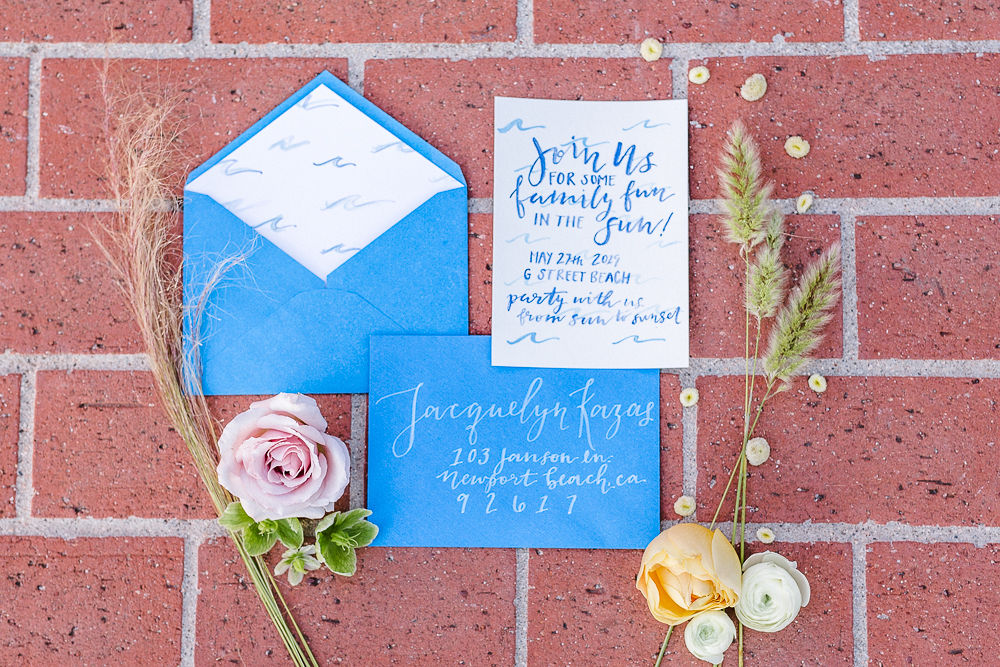 Join us
FOR SOME
family fun
IN THE sun!
MAY 27th 2019
G STREET BEACH
party with us
from sun to sunset
Jacquelyn Kazas
103 Janson ln.
newport beach, ca
92617